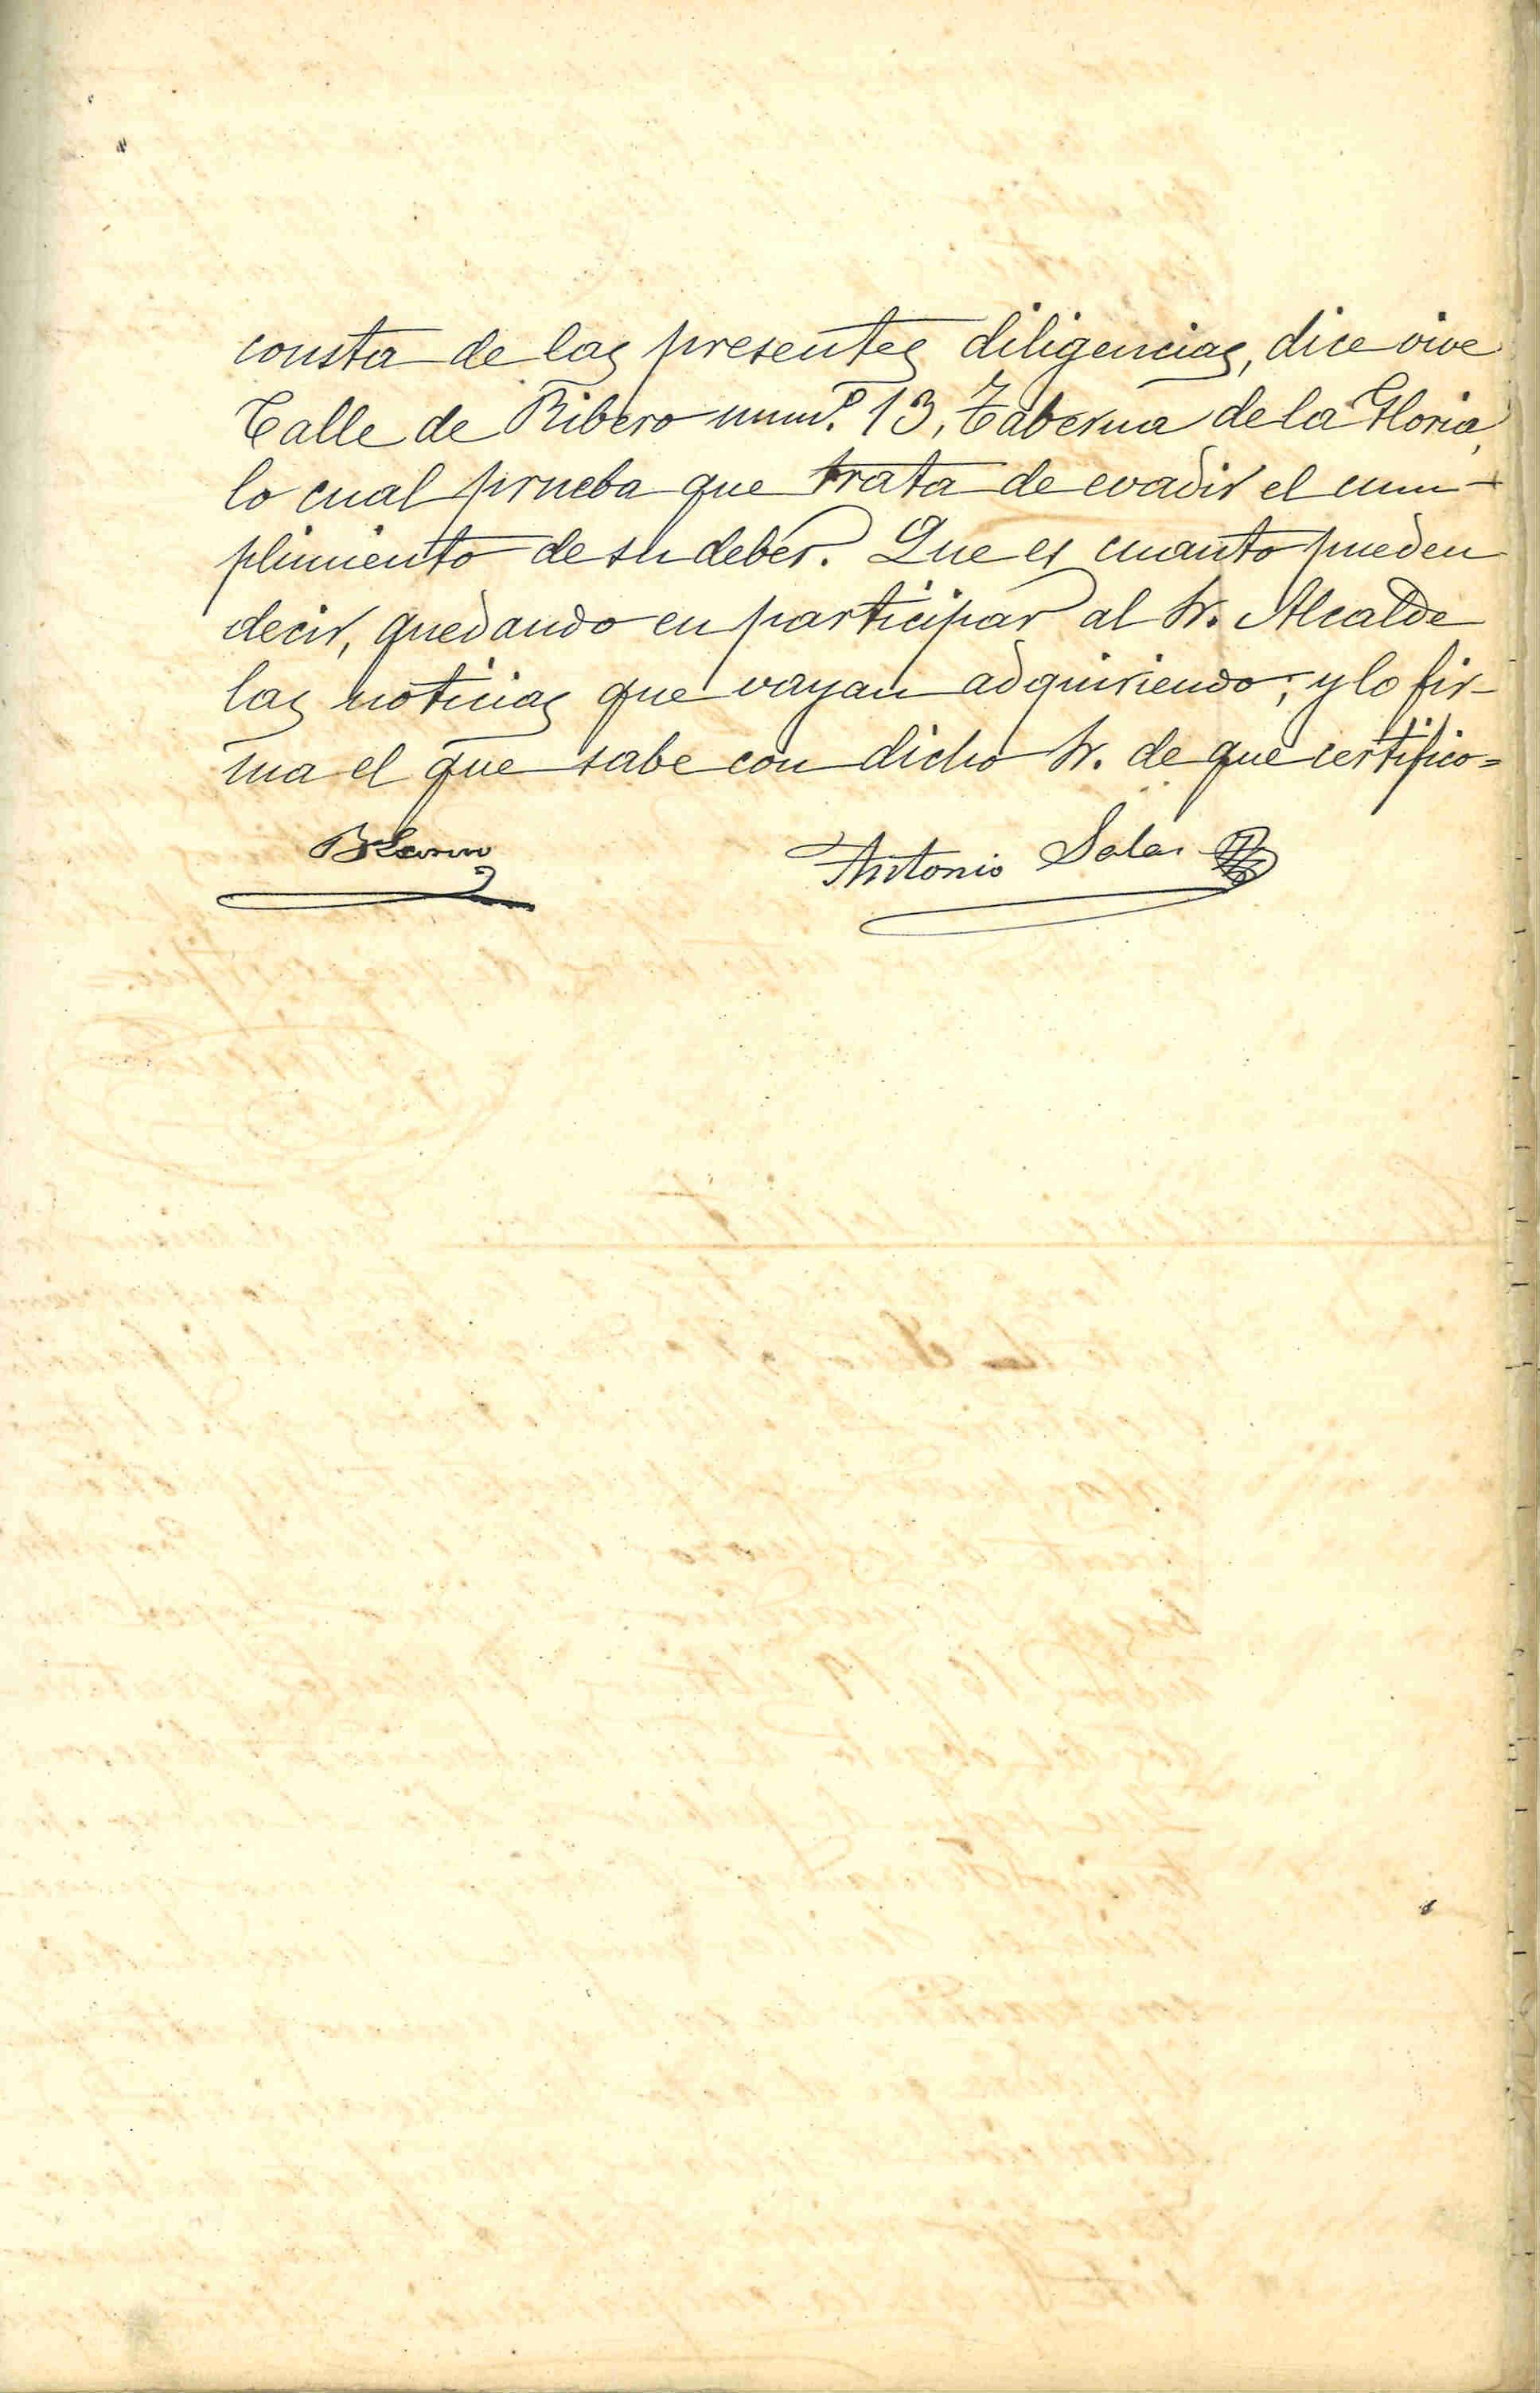 consta de las presentes diligencias, dice vive
Calle de Ribero num.º 13, Taberna de la Gloria,
lo cual prueba que trata de evadir el cum-
plimiento de su deber. Que es cuanto pueden
decir, quedando en participar al Sr. Alcalde
las noticias que vayan adquiriendo; y lo fir-
ma el que sabe con dicho Sr. de que certifico=
Antonio Salas